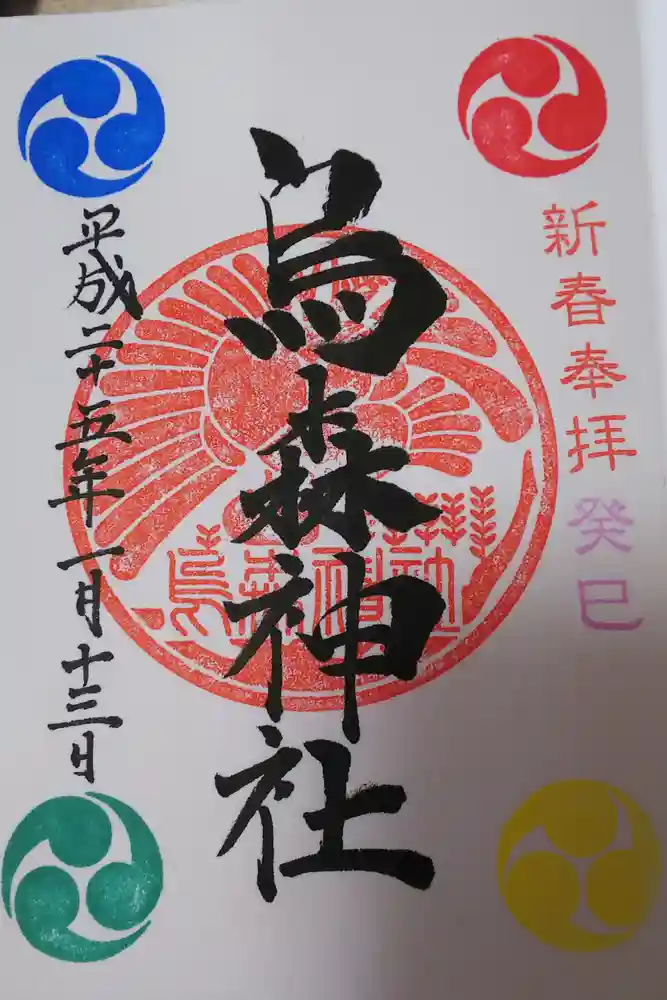 新春奉拝 癸巳
烏森神社
烏森神社
平成二十五年一月十三日